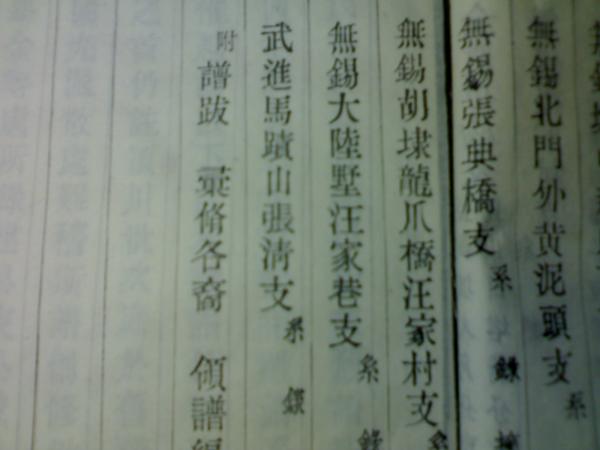 無錫北門外黄泥頭支 系
無錫張典橋支 系 錄
無錫胡埭龍爪橋汪家村支 系
無錫大陸墅汪家巷支 系 錄
武進馬蹟山張淸支 系 錄
附 譜跋 彙脩各裔 領譜編